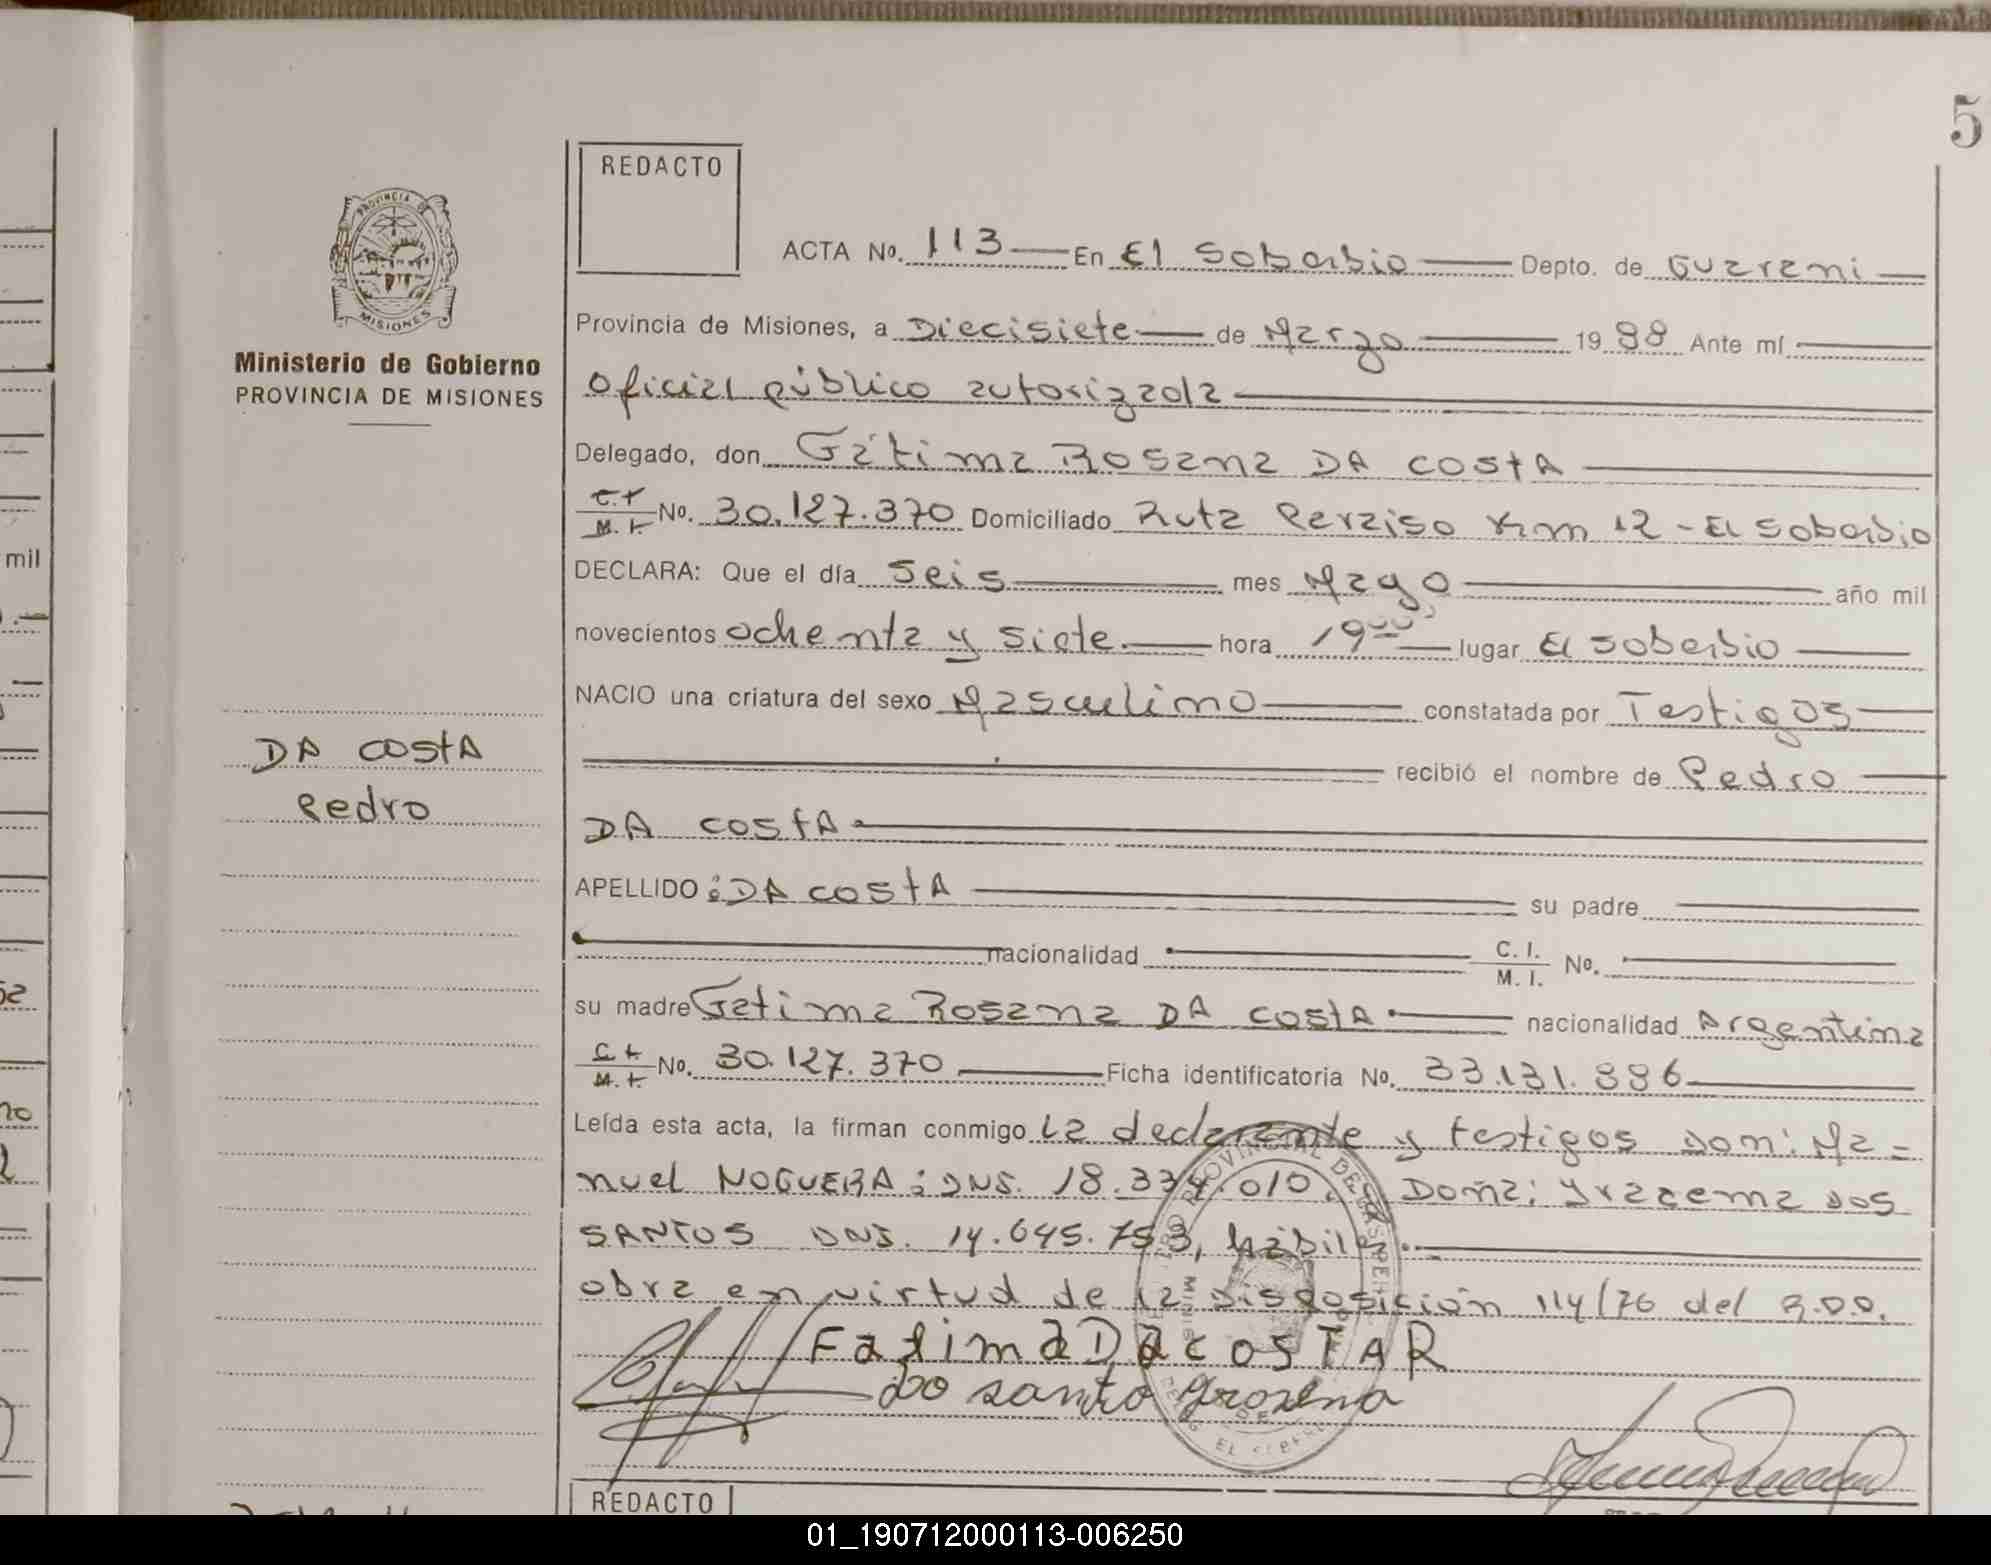 5
REDACTO
ACTA No. 113 En El Soberbio Depto. de Guarani
Provincia de Misiones, a Diecisiete de Marzo 1988 Ante mí
Oficial público autorizada
Delegado, don Fátima Rosana DA COSTA
C.I. M.I. No. 30.127.370 Domiciliado Ruta Peraiso Km 12 - El Soberbio
DECLARA: Que el día Seis mes Mayo año mil
novecientos ochenta y siete hora 19 lugar El Soberbio
NACIO una criatura del sexo Masculino constatada por Testigos
recibió el nombre de Pedro
DA COSTA
APELLIDO: DA COSTA su padre
nacionalidad C. I. M. I. No.
su madre Fatima Rosana DA COSTA nacionalidad Argentina
C.I. M.I. No. 30.127.370 Ficha identificatoria No. 33.131.886
Leída esta acta, la firman conmigo la declarante y testigos Don: Ma=
nuel NOGUERA: DNI. 18.334.010. y Doña: Yracema DOS
SANTOS DNI. 14.645.753, hábiles.
obra en virtud de la Disposición 114/76 del R.D.D.
Fatima DacosTAR
Do santo
REDACTO
PROVINCIA DE MISIONES
Ministerio de Gobierno
PROVINCIA DE MISIONES
DA COSTA
Pedro
mil
01_190712000113-006250